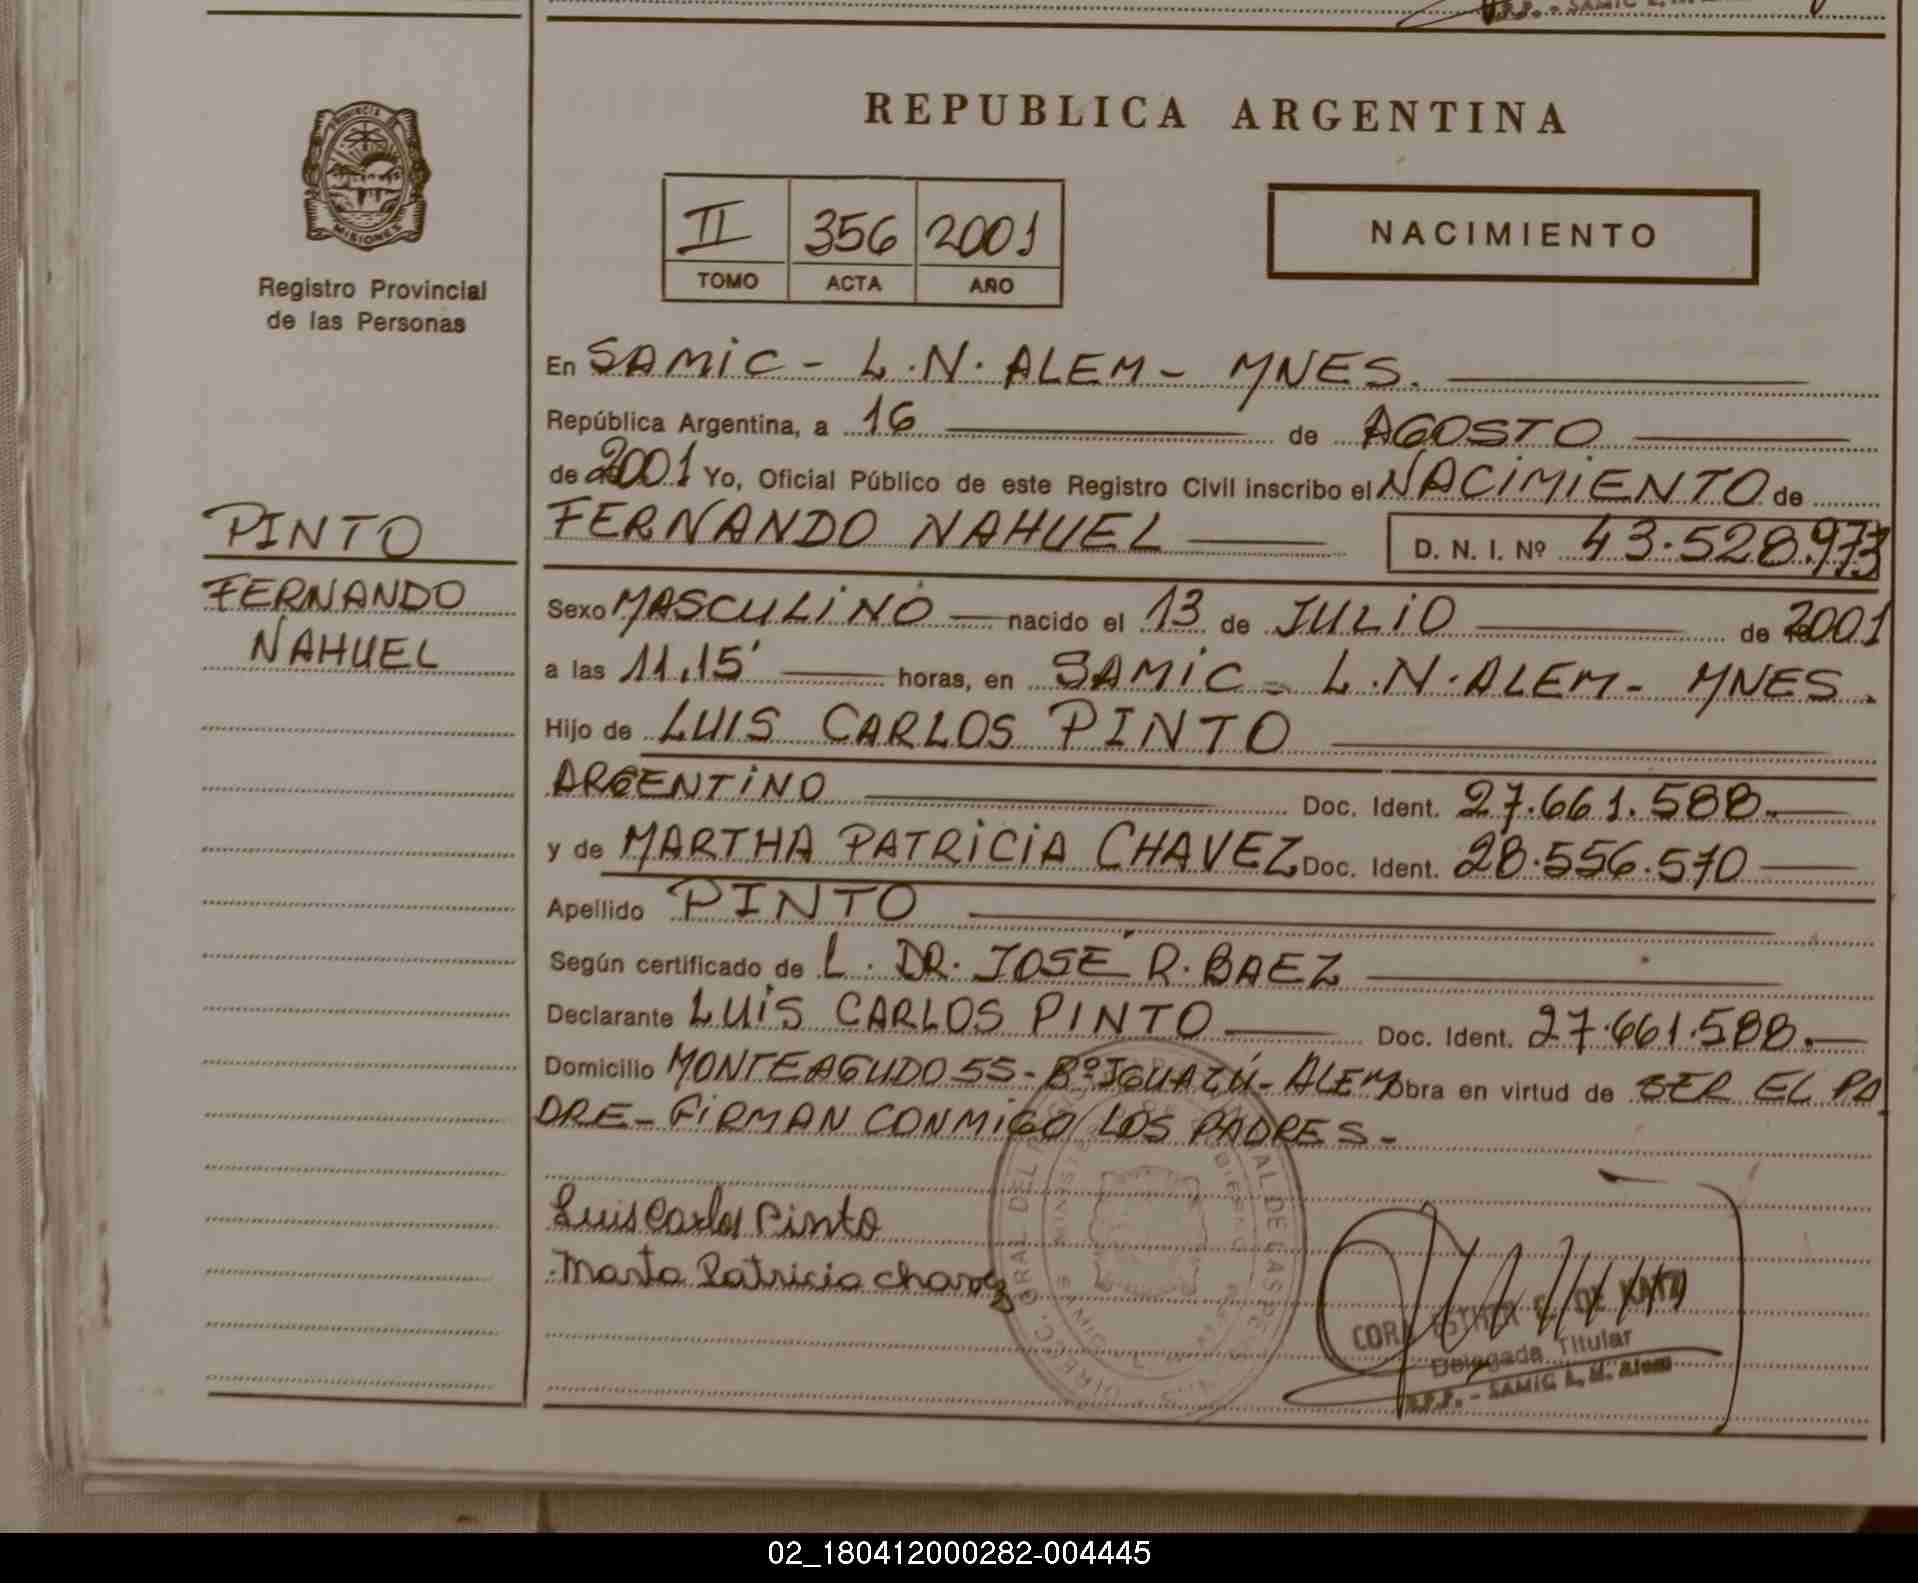 REPUBLICA ARGENTINA
PROVINCIA DE
MISIONES
Registro Provincial
de las Personas
II 356 2001
TOMO ACTA AÑO
NACIMIENTO
En SAMIC - L.N. ALEM - MNES.
República Argentina, a 16 de AGOSTO
de 2001 Yo, Oficial Público de este Registro Civil inscribo el NACIMIENTO de
FERNANDO NAHUEL D. N. I. Nº 43.528.973
PINTO
FERNANDO
NAHUEL
Sexo MASCULINO nacido el 13 de JULIO de 2001
a las 11,15' horas, en SAMIC - L.N. ALEM - MNES.
Hijo de LUIS CARLOS PINTO
ARGENTINO Doc. Ident. 27.661.588.
y de MARTHA PATRICIA CHAVEZ Doc. Ident. 28.556.570
Apellido PINTO
Según certificado de L. DR. JOSÉ R. BAEZ
Declarante LUIS CARLOS PINTO Doc. Ident. 27.661.588.
Domicilio MONTEAGUDO 55 - Bº IGUAZÚ - ALEM Obra en virtud de SER EL PA
DRE - FIRMAN CONMIGO LOS PADRES -
Luis Carlos Pinto
Marta Patricia Chavez
DE KATZ
Delegada Titular
R.P.P. - SAMIC L. N. Alem
02_180412000282-004445